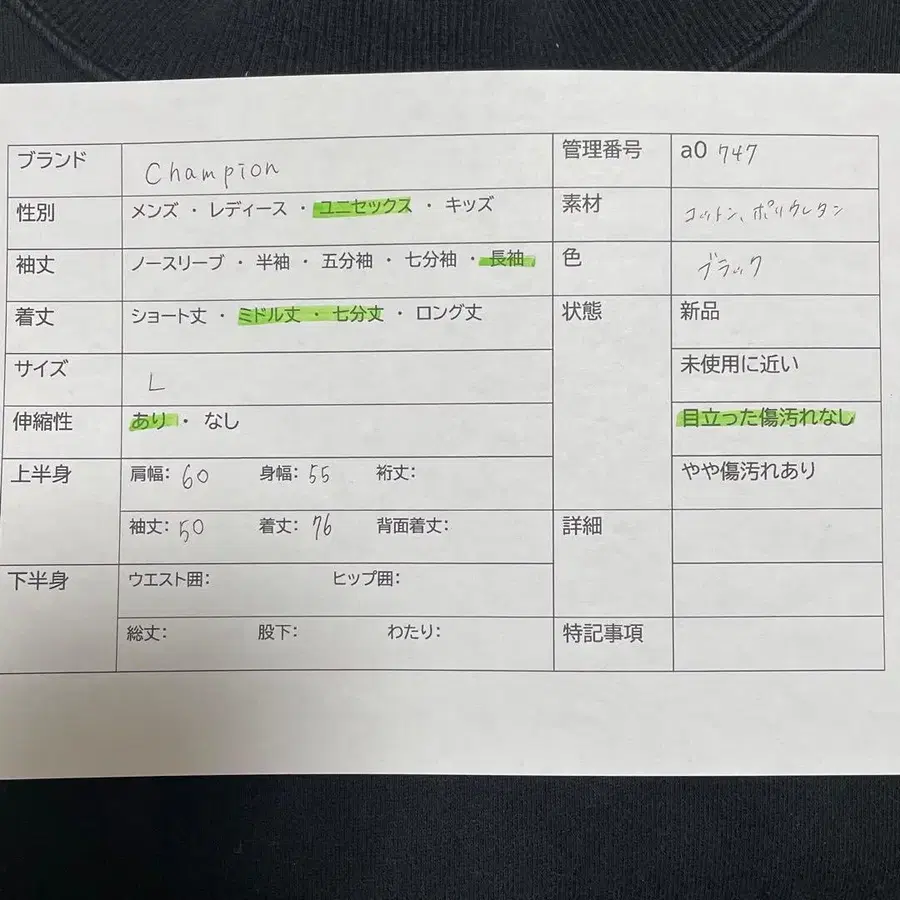 ブランド Champion 管理番号 a0 747
性別 メンズ ・ レディース ・ ユニセックス ・ キッズ 素材 コットン、ポリウレタン
袖丈 ノースリーブ ・ 半袖 ・ 五分袖 ・ 七分袖 ・ 長袖 色 ブラック
着丈 ショート丈 ・ ミドル丈 ・ 七分丈 ・ ロング丈 状態 新品
サイズ L 未使用に近い
伸縮性 あり ・ なし 目立った傷汚れなし
上半身 肩幅: 60 身幅: 55 裄丈: やや傷汚れあり
袖丈: 50 着丈: 76 背面着丈: 詳細
下半身 ウエスト囲: ヒップ囲:
総丈: 股下: わたり: 特記事項